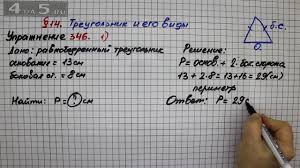 4 из 5.ru
§14. Треугольник и его виды
Упражнение 346. 1)
Дано: равнобедренный треугольник
основание = 13 см
боковая ст. = 8 см
Найти: P = ? см
Решение:
P = основ. + 2·бок. сторона
13 + 2·8 = 13 + 16 = 29 (см)
периметр
Ответ: P = 29 с
б.с.
О.